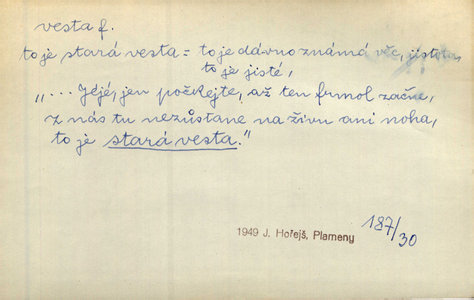 vesta f.
to je stará vesta = to je dávno známá věc, jistota,
to je jisté,
„... Jéjé, jen počkejte, až ten frmol začne,
z nás tu nezůstane na živu ani noha,
to je stará vesta."
1949 J. Hořejš, Plameny
187/30